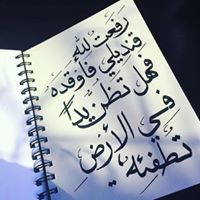 رفعت لله
قنديلي فأوقده
فهل تظن يداً
في الأرض
تطفئه